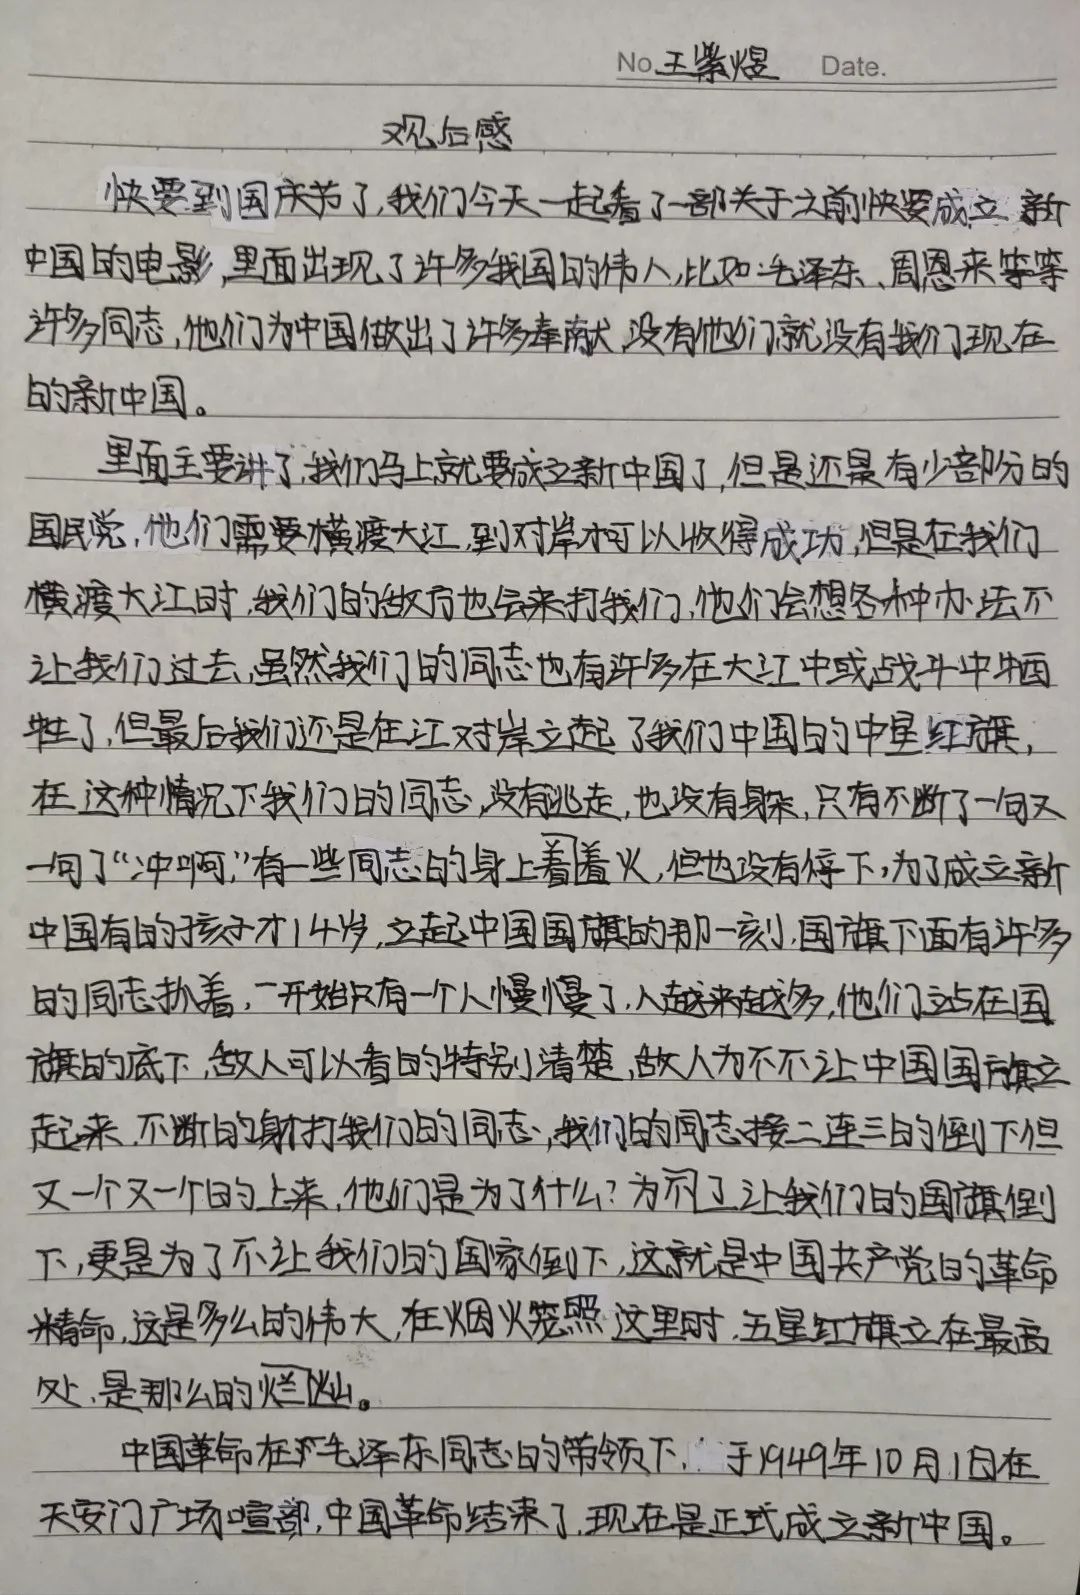 No. 王紫煜 Date.
观后感
快要到国庆节了,我们今天一起看了一部关于之前快要成立新
中国的电影,里面出现了许多我国的伟人,比如:毛泽东、周恩来等等
许多同志,他们为中国做出了许多奉献,没有他们就没有我们现在
的新中国。
里面主要讲了,我们马上就要成立新中国了,但是还是有少部分的
国民党,他们需要横渡大江,到对岸才可以收得成功,但是在我们
横渡大江时,我们的敌方也会来打我们,他们会想各种办法不
让我们过去,虽然我们的同志也有许多在大江中或战斗中牺
牲了,但最后我们还是在江对岸立起了我们中国的中星红旗,
在这种情况下我们的同志,没有逃走,也没有躲,只有不断了一句又
一句了“冲啊,”有一些同志的身上着着火,但也没有停下,为了成立新
中国有的孩子才14岁,立起中国国旗的那一刻,国旗下面有许多
的同志扒着,一开始只有一个人慢慢了,人越来越多,他们站在国
旗的底下,敌人可以看的特别清楚,敌人为不不让中国国旗立
起来,不断的射打我们的同志,我们的同志接二连三的倒下但
又一个又一个的上来,他们是为了什么?为了不让我们的国旗倒
下,更是为了不让我们的国家倒下,这就是中国共产党的革命
精命,这是多么的伟大,在烟火笼照这里时,五星红旗立在最高
处,是那么的烂灿。
中国革命在毛泽东同志的带领下,于1949年10月1日在
天安门广场喧部,中国革命结束了,现在是正式成立新中国。